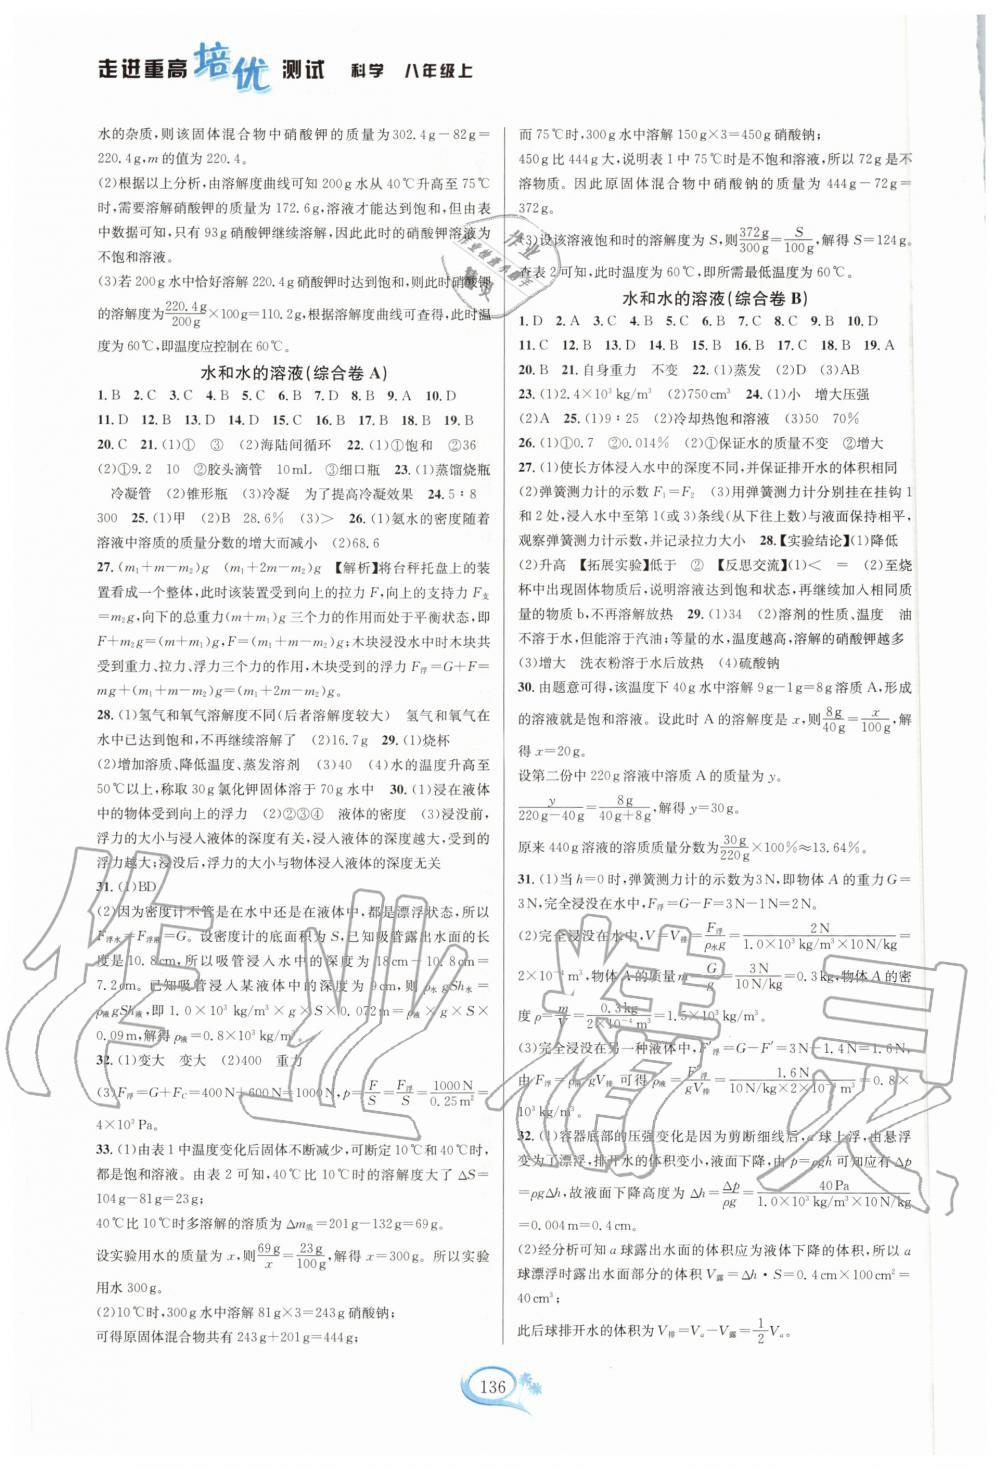 走进重高 培优 测试 科学 八年级上
水的杂质,则该固体混合物中硝酸钾的质量为302.4g-82g=
220.4g,m的值为220.4。
(2)根据以上分析,由溶解度曲线可知200g水从40℃升高至75℃
时,需要溶解硝酸钾的质量为172.6g,溶液才能达到饱和,但由表
中数据可知,只有93g硝酸钾继续溶解,因此此时的硝酸钾溶液为
不饱和溶液。
(3)若200g水中恰好溶解220.4g硝酸钾时达到饱和,此时硝酸钾
的溶解度为220.4g/200g×100g=110.2g,根据溶解度曲线可查得,此时温
度为60℃,即温度应控制在60℃。
水和水的溶液(综合卷A)
1.B 2.C 3.C 4.B 5.C 6.B 7.D 8.B 9.A 10.D
11.D 12.B 13.D 14.D 15.D 16.B 17.B 18.B 19.B
20.C 21.(1)① ③ (2)海陆间循环 22.(1)①饱和 ②36
(2)①9.2 10 ②胶头滴管 10mL ③细口瓶 23.(1)蒸馏烧瓶
冷凝管 (2)锥形瓶 (3)冷凝 为了提高冷凝效果 24.5∶8
300 25.(1)甲 (2)B 28.6% (3)> 26.(1)氨水的密度随着
溶液中溶质的质量分数的增大而减小 (2)68.6
27.(m₁+m-m₂)g (m₁+m-m₂)g 【解析】将台秤托盘上的装
置看成一个整体,此时该装置受到向上的拉力F,向上的支持力F支
=m₂g,向下的总重力(m+m₁)g三个力的作用而处于平衡状态,即
F+m₂g=(m+m₁)g,F=(m₁+m-m₂)g;木块浸没水中时木块共
受到重力、拉力、浮力三个力的作用,木块受到的浮力F浮=G+F=
mg+(m₁+m-m₂)g=(m₁+2m-m₂)g。
28.(1)氢气和氧气溶解度不同(后者溶解度较大) 氢气和氧气在
水中已达到饱和,不再继续溶解了 (2)16.7g 29.(1)烧杯
(2)增加溶质、降低温度、蒸发溶剂 (3)40 (4)水的温度升高至
50℃以上,称取30g氯化钾固体溶于70g水中 30.(1)浸在液体
中的物体受到向上的浮力 (2)②③④ 液体的密度 (3)浸没前,
浮力的大小与浸入液体的深度有关,浸入液体的深度越大,受到的
浮力越大;浸没后,浮力的大小与物体浸入液体的深度无关
31.(1)BD
(2)因为密度计不管是在水中还是在液体中,都是漂浮状态,所以
F浮水=F浮液=G。设密度计的底面积为S,已知吸管露出水面的长
度是10.8cm,所以吸管浸入水中的深度为18cm-10.8cm=
7.2cm。已知吸管浸入某液体中的深度为9cm,则ρ水gSh水=
ρ液gSh液,即1.0×10³kg/m³×g×S×0.072m=ρ液×g×S×
0.09m,解得ρ液=0.8×10³kg/m³。
32.(1)变大 变大 (2)400 重力
(3)F浮=G+F_C=400N+600N=1000N,p=F/S=F浮/S=1000N/0.25m²=
4×10³Pa
33.(1)由表1中温度变化后固体不断减少,可断定10℃和40℃时,
都是饱和溶液。由表2可知,40℃比10℃时的溶解度大了ΔS=
104g-81g=23g;
40℃比10℃时多溶解的溶质为Δm质=201g-132g=69g。
设实验用水的质量为x,则69g/x=23g/100g,解得x=300g。所以实验
用水300g。
(2)10℃时,300g水中溶解81g×3=243g硝酸钠;
可得原固体混合物共有243g+201g=444g;
而75℃时,300g水中溶解150g×3=450g硝酸钠;
450g比444g大,说明表1中75℃时是不饱和溶液,所以72g是不
溶物质。因此原固体混合物中硝酸钠的质量为444g-72g=
372g。
(3)设该溶液饱和时的溶解度为S,则372g/300g=S/100g,解得S=124g。
查表2可知,此时温度为60℃,即所需最低温度为60℃。
水和水的溶液(综合卷B)
1.D 2.A 3.C 4.C 5.C 6.B 7.C 8.C 9.B 10.D
11.C 12.B 13.D 14.B 15.B 16.B 17.C 18.B 19.A
20.B 21.自身重力 不变 22.(1)蒸发 (2)D (3)AB
23.(1)2.4×10³kg/m³ (2)750cm³ 24.(1)小 增大压强
(2)A 25.(1)9∶25 (2)冷却热饱和溶液 (3)50 70%
26.(1)①0.7 ②0.014% (2)①保证水的质量不变 ②增大
27.(1)使长方体浸入水中的深度不同,并保证排开水的体积相同
(2)弹簧测力计的示数F₁=F₂ (3)用弹簧测力计分别挂在挂钩1
和2处,浸入水中至第1(或3)条线(从下往上数)与液面保持相平,
观察弹簧测力计示数,并记录拉力大小 28.【实验结论】(1)降低
(2)升高 【拓展实验】低于 ② 【反思交流】(1)< = (2)至烧
杯中出现固体物质,说明溶液达到饱和状态,再继续加入相同质量
的物质b,不再溶解放热 29.(1)34 (2)溶剂的性质、温度 油
不溶于水,但能溶于汽油;等量的水,温度越高,溶解的硝酸钾越多
(3)增大 洗衣粉溶于水后放热 (4)硫酸钠
30.由题意可得,该温度下40g水中溶解9g-1g=8g溶质A,形成
的溶液就是饱和溶液。设此时A的溶解度是x,则8g/40g=x/100g,解
得x=20g。
设第二份中220g溶液中溶质A的质量为y。
y/220g-40g=8g/40g+8g,解得y=30g。
原来440g溶液的溶质质量分数为30g/220g×100%≈13.64%。
31.(1)当h=0时,弹簧测力计的示数为3N,即物体A的重力G=
3N,完全浸没在水中时,F浮=G-F=3N-1N=2N。
(2)完全浸没在水中,V=V排=F浮/ρ水g=2N/1.0×10³kg/m³×10N/kg=
2×10⁻⁴m³,物体A的质量m=G/g=3N/10N/kg=0.3kg,物体A的密
度ρ=m/V=0.3kg/2×10⁻⁴m³=1.5×10³kg/m³。
(3)完全浸没在另一种液体中,F′浮=G-F′=3N-1.4N=1.6N,
由F浮=ρ液gV排可得ρ液=F′浮/gV排=1.6N/10N/kg×2×10⁻⁴m³=0.8×
10³kg/m³。
32.(1)容器底部的压强变化是因为剪断细线后,a球上浮,由悬浮
变为了漂浮,排开水的体积变小,液面下降,由p=ρgh可知应有Δp
=ρgΔh,故液面下降高度为Δh=Δp/ρg=40Pa/1.0×10³kg/m³×10N/kg
=0.004m=0.4cm。
(2)经分析可知a球露出水面的体积应为液体下降的体积,所以a
球漂浮时露出水面部分的体积V露=Δh·S=0.4cm×100cm²=
40cm³;
此后球排开水的体积为V排=Vₐ-V露=1/2Vₐ。
136
作业精灵